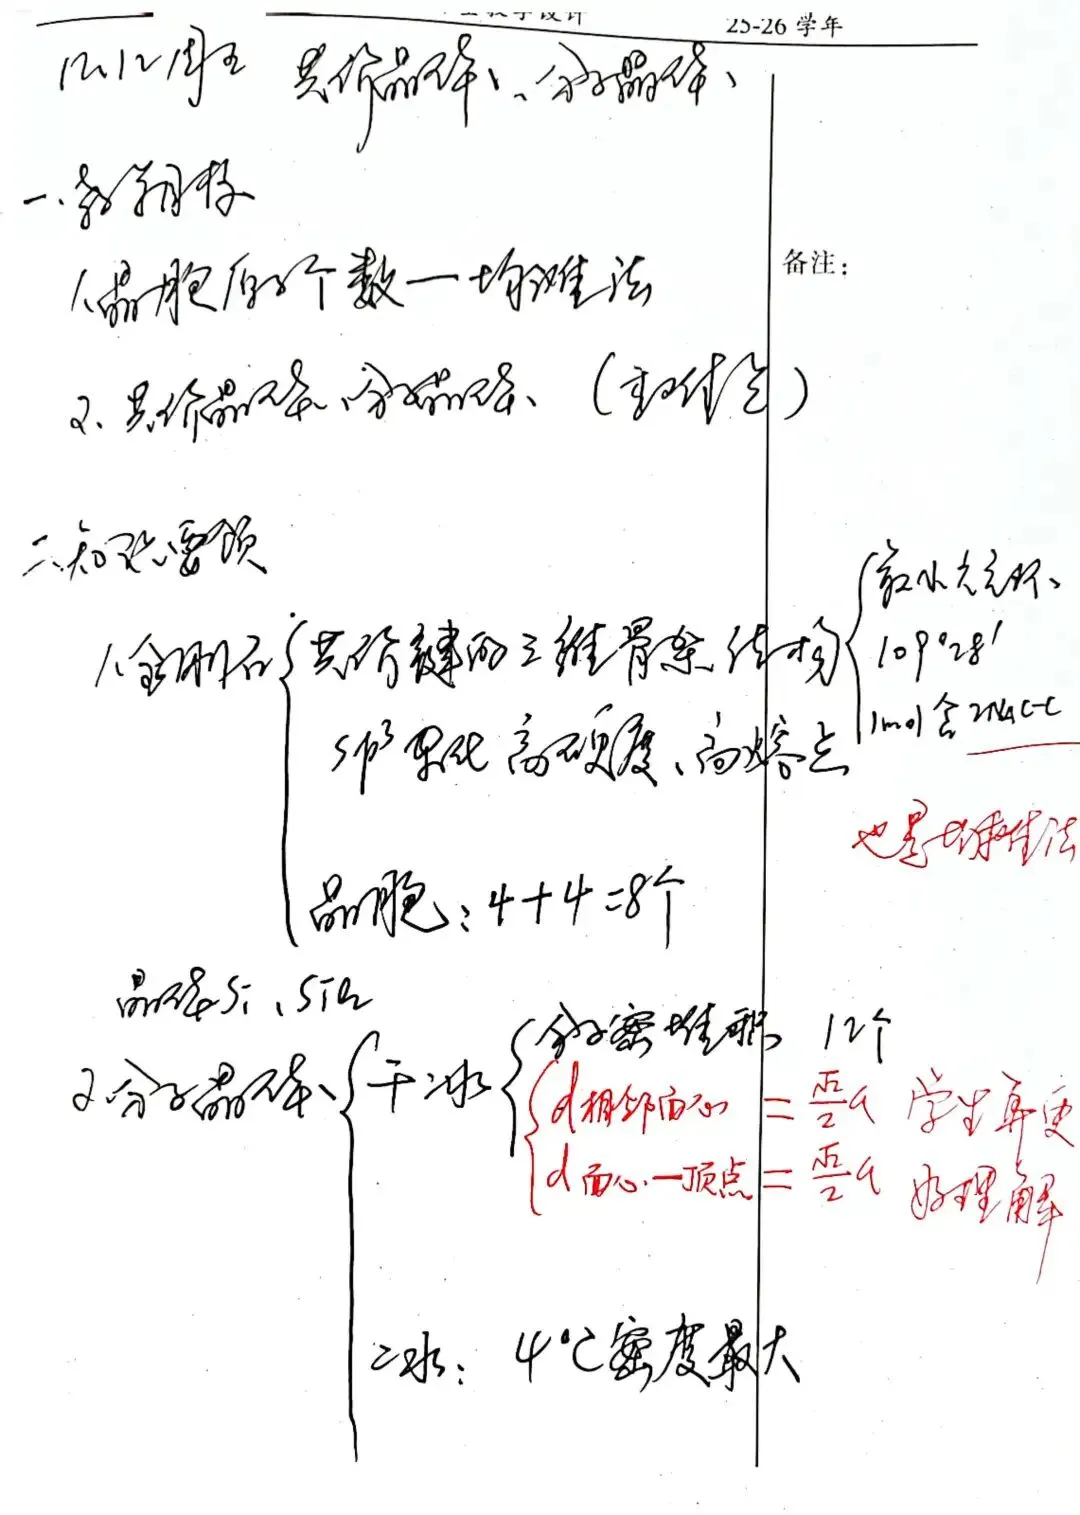 教学设计
25-26 学年
12.12 周五 共价晶体、分子晶体、
一、教学目标
1、晶胞原子个数—均摊法
2、共价晶体、分子晶体、(重结合)
备注：
二、知识要领
1、金刚石
共价键的三维骨架结构
最小六元环、
109°28′
1mol含2NA C-C
sp³杂化 高硬度、高熔点
也是均摊法
晶胞：4+4=8个
晶体Si、SiO₂
2、分子晶体、
干冰
分子密堆积 12个
d相邻面心 = √2/2 a 学生算更
d面心—顶点 = √2/2 a 好理解
冰： 4℃密度最大